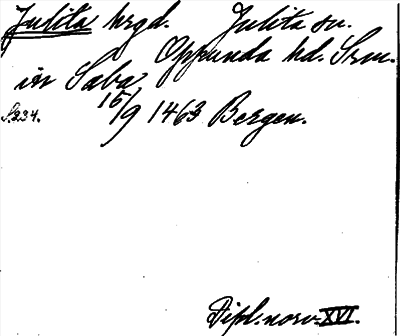 Julita hrgd. Julita sn.
Oppunda hd. Srm.
in Saba
S. 234. 15/9 1463 Bergen.
Dipl. norv. XVI.